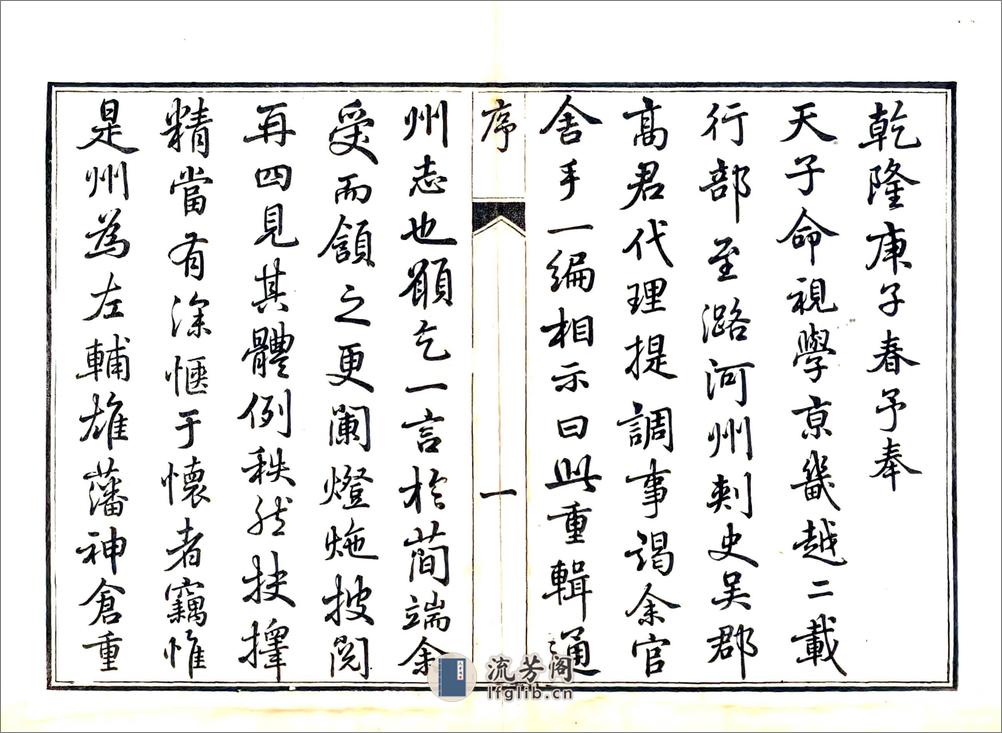 乾隆庚子春予奉
天子命視學京畿越二載
行部至潞河州刺史吴郡
高君代理提調事謁余官
舍手一編相示曰此重輯通
序
一
州志也顧乞一言於蕳端余
受而頷之更闌燈灺披閲
再四見其體例秩然抉擇
精當有深愜于懷者竊惟
是州為左輔雄藩神倉重
流芳阁
lfglib.cn